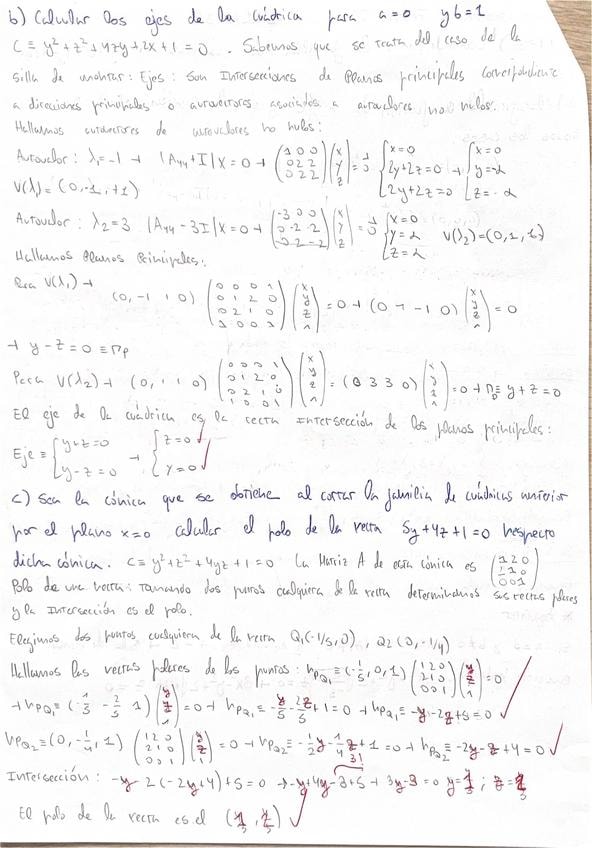 b) Calcular los ejes de la cuádrica para a=0 y b=1
C ≡ y² + z² + 4zy + 2x + 1 = 0 . Sabemos que se trata del caso de la
silla de montar: Ejes: Son Intersecciones de Planos principales correspondiente
a direcciones principales o autovectores asociados a autovalores no nulos.
Hallamos autovectores de autovalores no nulos:
Autovalor: λ₁=-1 → |A₄₄+I|X=0 → (1 0 0 / 0 2 2 / 0 2 2)(x / y / z) = 0 → {x=0 / 2y+2z=0 / 2y+2z=0 → {x=0 / y=α / z=-α
V(λ₁) = (0,-1,+1)
Autovalor: λ₂=3 |A₄₄-3I|X=0 → (-3 0 0 / 0 -2 2 / 0 2 -2)(x / y / z) = 0 {x=0 / y=α / z=α V(λ₂)=(0,1,1)
Hallamos Planos Principales:
Para V(λ₁) →
(0, -1 1 0) (0 0 0 1 / 0 1 2 0 / 0 2 1 0 / 1 0 0 1)(x / y / z / 1) = 0 → (0 1 -1 0)(x / y / z / 1) = 0
→ y-z=0 ≡ Πp
Para V(λ₂) → (0, 1 1 0) (0 0 0 1 / 0 1 2 0 / 0 2 1 0 / 1 0 0 1)(x / y / z / 1) = (0 3 3 0)(x / y / z / 1) = 0 → Πp ≡ y+z=0
El eje de la cuádrica es la recta intersección de los planos principales:
Eje ≡ {y+z=0 / y-z=0 → {z=0 / y=0
c) Sea la cónica que se obtiene al cortar la familia de cuádricas anterior
por el plano x=0 calcular el polo de la recta 5y+4z+1=0 respecto
dicha cónica. C ≡ y²+z²+4yz+1=0 La Matriz A de esta cónica es (1 2 0 / 2 1 0 / 0 0 1)
Polo de una recta: Tomando dos puntos cualquiera de la recta determinamos sus rectas polares
y la Intersección es el polo.
Elegimos dos puntos cualquiera de la recta Q₁(-1/5,0), Q₂(0,-1/4)
Hallamos las rectas polares de los puntos: hPQ₁ ≡ (-1/5,0,1)(1 2 0 / 2 1 0 / 0 0 1)(y / z / 1) = 0
→ hPQ₁ ≡ (-1/5 -2/5 1)(y / z / 1) = 0 → hPQ₁ ≡ -y/5 - 2z/5 + 1 = 0 → hPQ₁ ≡ -y-2z+5=0
hPQ₂ ≡ (0, -1/4, 1)(1 2 0 / 2 1 0 / 0 0 1)(y / z / 1) = 0 → hPQ₂ ≡ -1/2y - 1/4z + 1 = 0 → hPQ₂ ≡ -2y-z+4=0
Intersección: -y-2(-2y+4)+5=0 → -y+4y-8+5 → 3y-3=0 y=1 ;
El polo de la recta es el